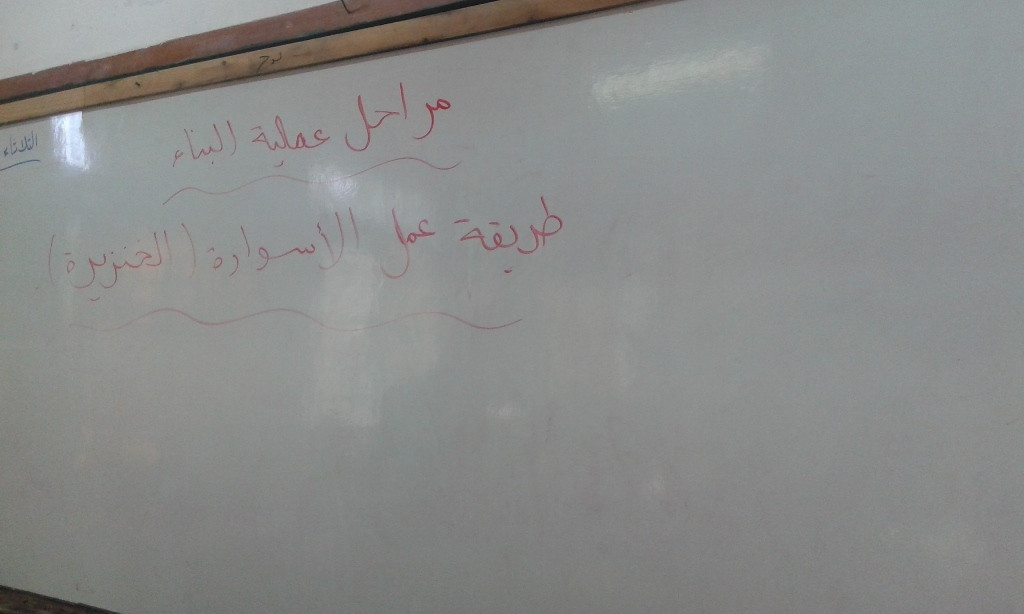 مراحل عملية البناء
الثلاثاء
طريقة عمل الأسوارة (الخنزيرة)